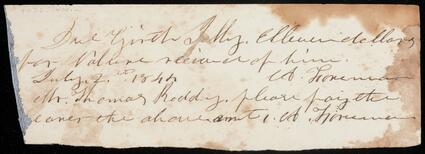 Due Girth Jolly. Elleven dollars
for Vallue reciued of him.
July 2th 1844 A Foreman
Mr. Thomas Roddy, please pay the
barer the above amt A. Foreman